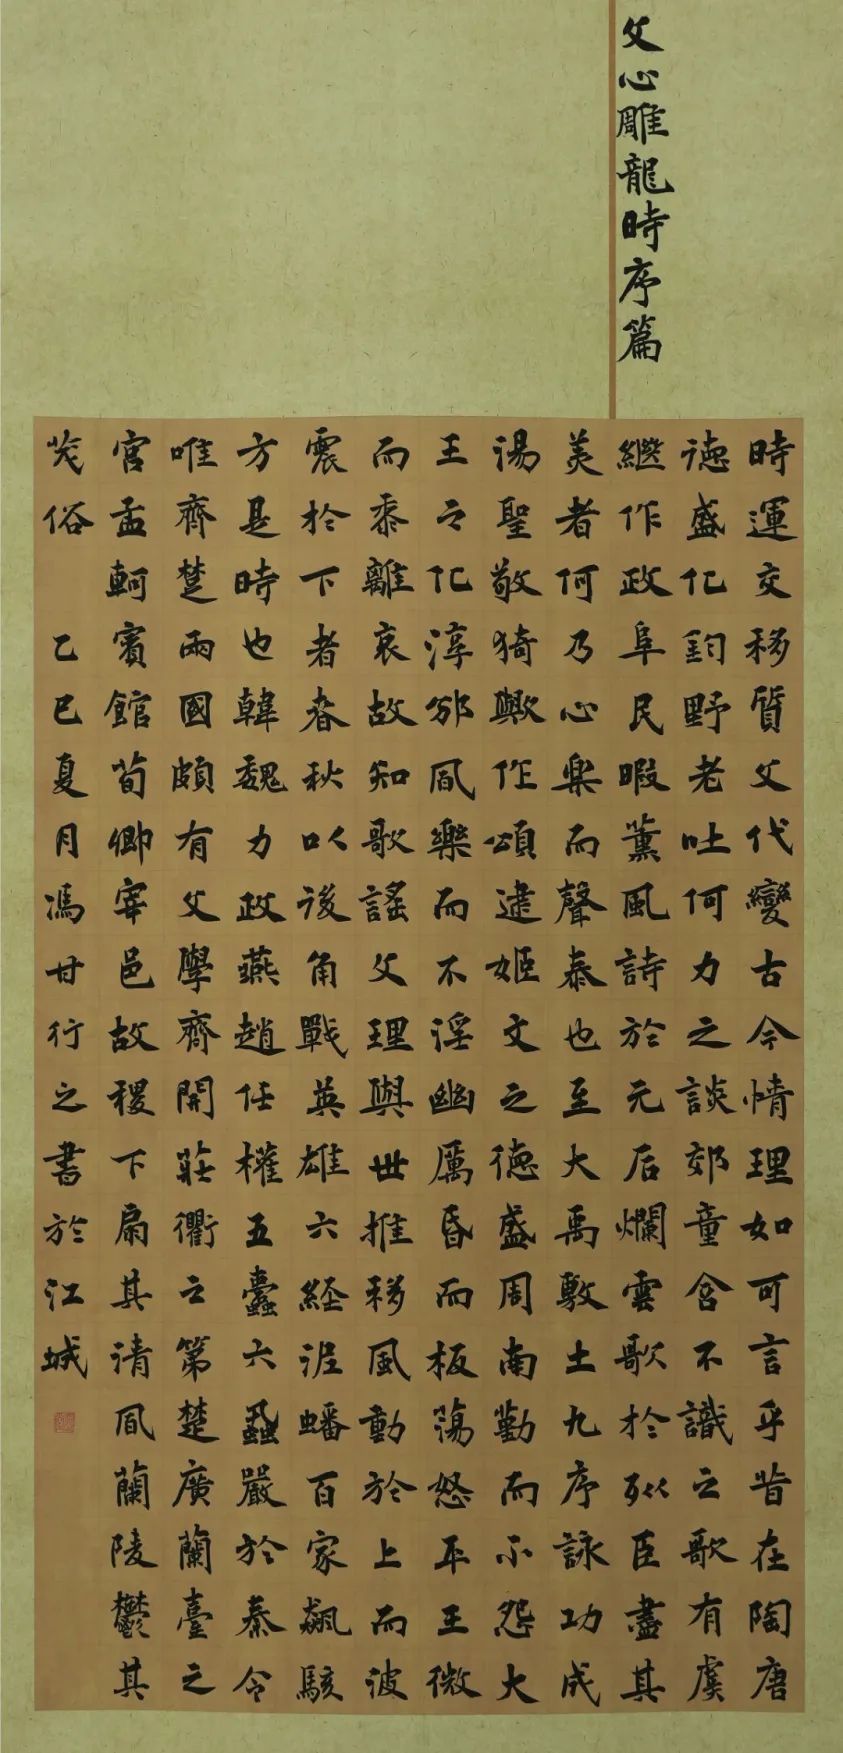 文心雕龍時序篇
時運交移質文代變古今情理如可言乎昔在陶唐
德盛化鈞野老吐何力之談郊童含不識之歌有虞
繼作政阜民暇薰風詩於元后爛雲歌於列臣盡其
美者何乃心樂而聲泰也至大禹敷土九序詠功成
湯聖敬猗歟作頌逮姬文之德盛周南勤而不怨大
王之化淳邠風樂而不淫幽厲昏而板蕩怒平王微
而黍離哀故知歌謠文理與世推移風動於上而波
震於下者春秋以後角戰英雄六経泥蟠百家飆駭
方是時也韓魏力政燕趙任權五蠹六蝨嚴於秦令
唯齊楚兩國頗有文學齊開莊衢之第楚廣蘭臺之
宮孟軻賓館荀卿宰邑故稷下扇其清風蘭陵鬱其
茂俗 乙巳夏月馮甘行之書於江城